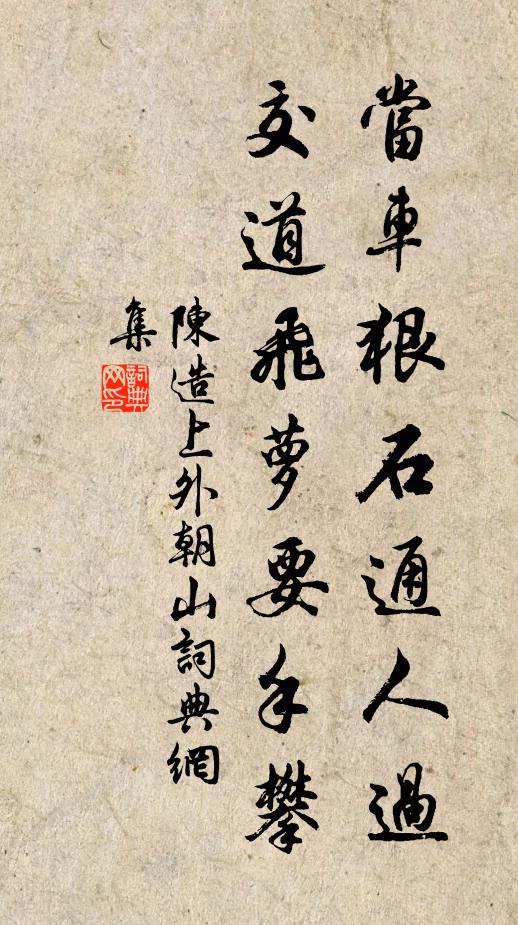 當車狠石通人過
交道飛夢要手攀
陳造上外朝山詞典網
集
詞典
网印